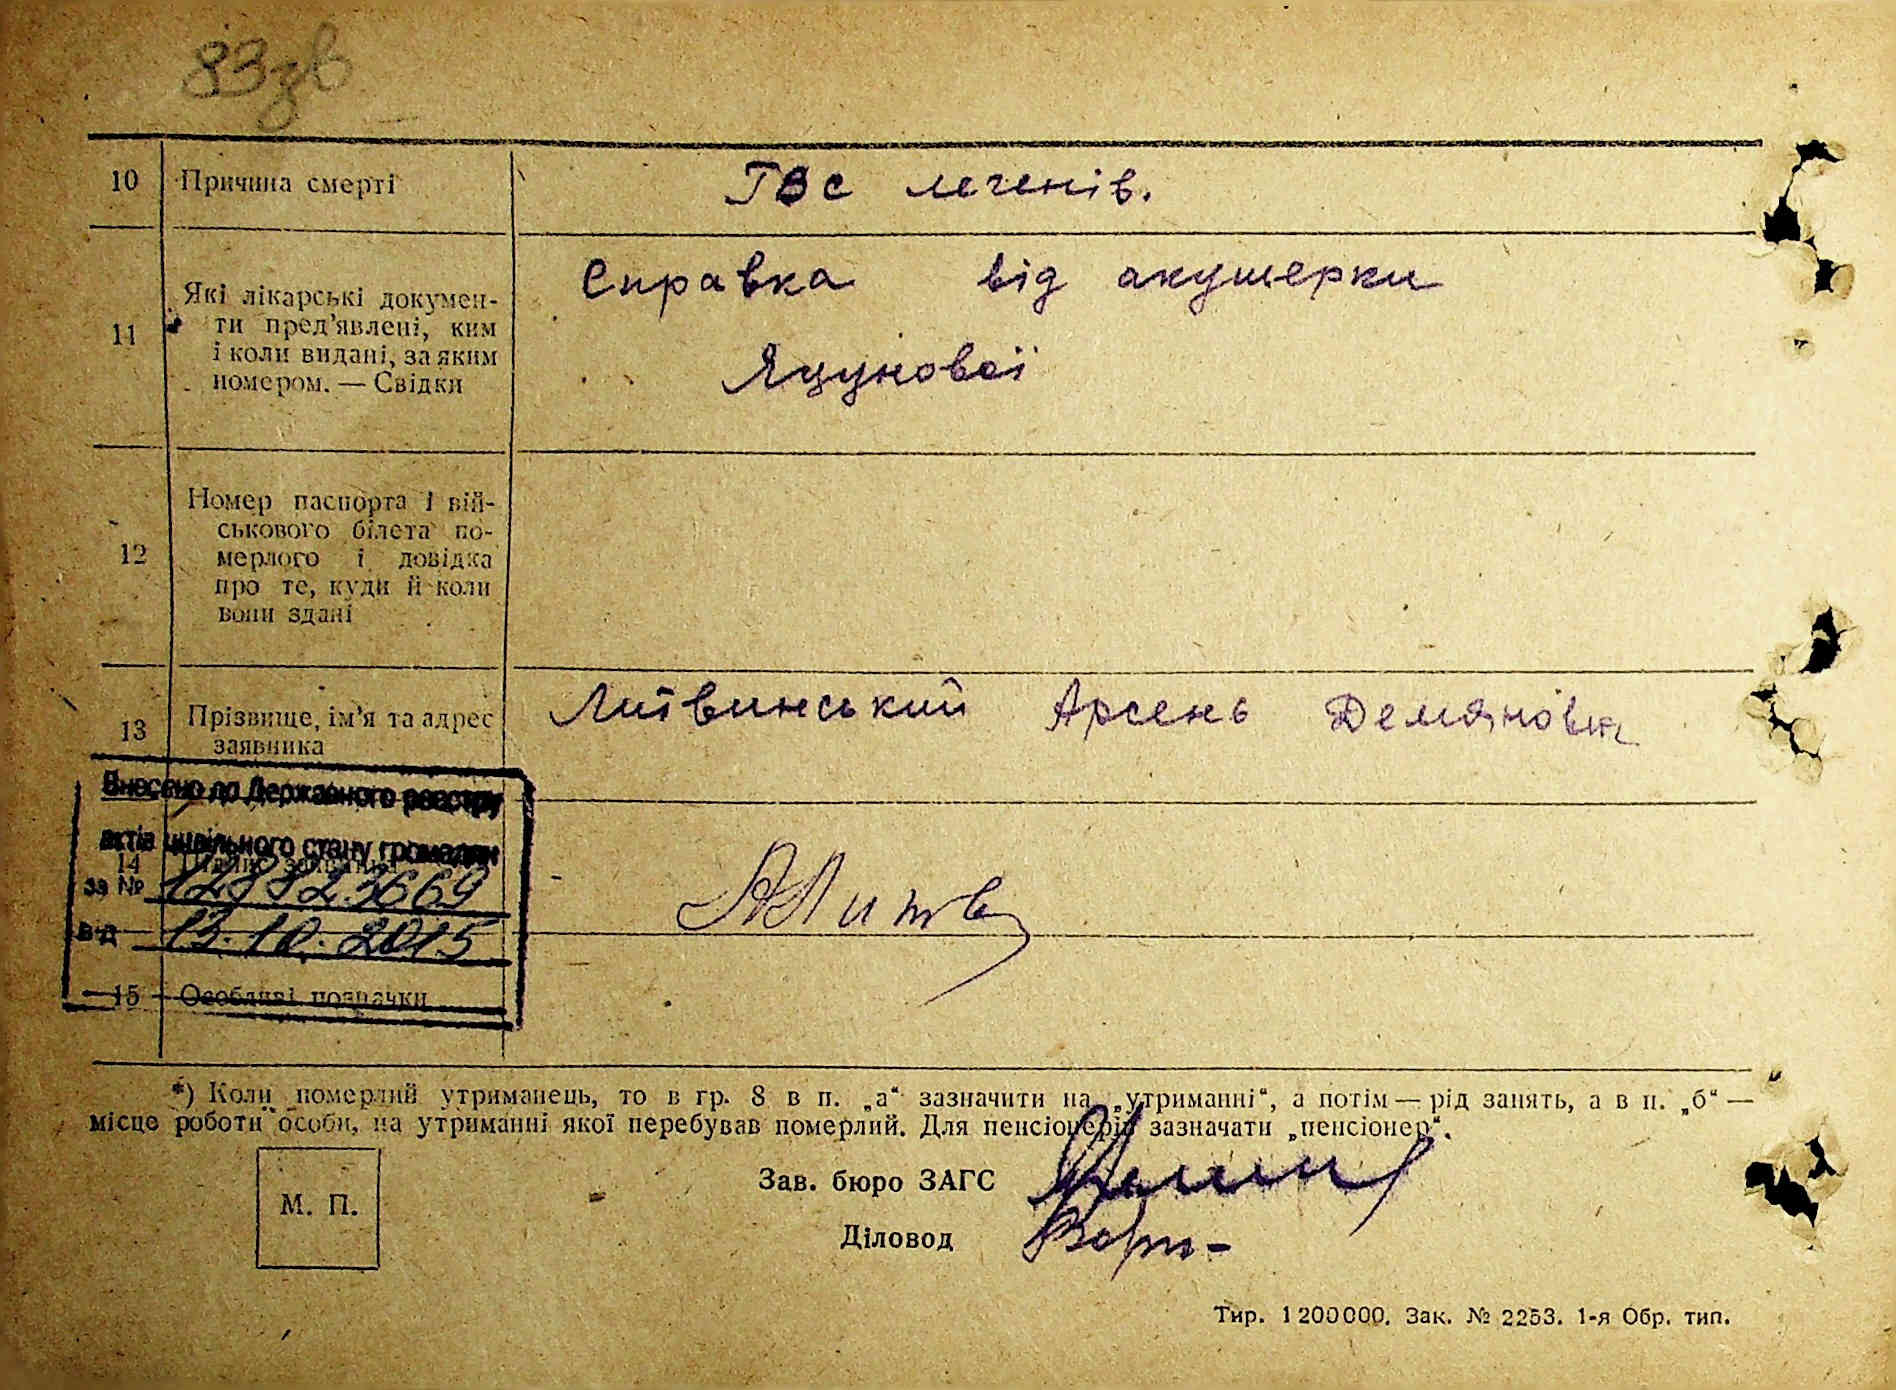 83зв
10 Причина смерті ТВС легенів.
11 Які лікарські докумен-
ти пред'явлені, ким
і коли видані, за яким
номером. — Свідки
Справка від акушерки
Яцунової
12 Номер паспорта і вій-
ськового білета по-
мерлого і довідка
про те, куди й коли
вони здані
13 Прізвище, ім'я та адрес
заявника
Литвинський Арсень Демянович
Внесено до Державного реєстру
актів цивільного стану громадян
14 Підпис заявника
за № 128823669
від 13.10.2015
АЛитв
15 Особливі позначки
*) Коли померлий утриманець, то в гр. 8 в п. „а“ зазначити на „утриманні“, а потім — рід занять, а в п. „б“ —
місце роботи особи, на утриманні якої перебував померлий. Для пенсіонерів зазначати „пенсіонер“.
М. П.
Зав. бюро ЗАГС
Діловод
Тир. 1200000. Зак. № 2253. 1-я Обр. тип.